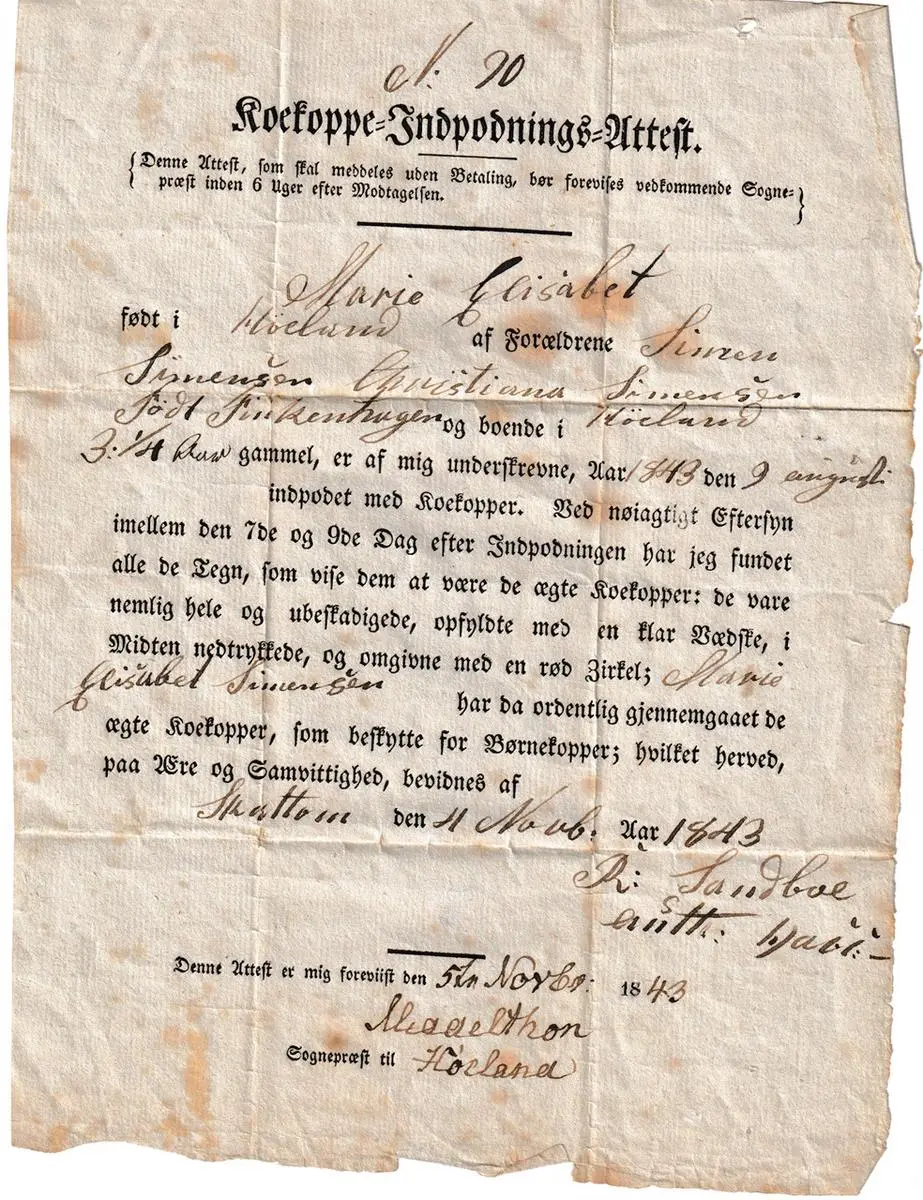 N. 20
Koekoppe-Indpodnings-Attest.
Denne Attest, som skal meddeles uden Betaling, bør forevises vedkommende Sogne-
præst inden 6 Uger efter Modtagelsen.
Marie Elisabet
født i Höeland af Forældrene Simen
Simensen Christiana Simensen
Födt Finkenhagen og boende i Höeland
3:1/4 Aar gammel, er af mig underskrevne, Aar 1843 den 9 august
indpodet med Koekopper. Ved nøiagtigt Eftersyn
imellem den 7de og 9de Dag efter Indpodningen har jeg fundet
alle de Tegn, som vise dem at være de ægte Koekopper: de vare
nemlig hele og ubeskadigede, opfyldte med en klar Vædske, i
Midten nedtrykkede, og omgivne med en rød Zirkel; Marie
Elisabet Simensen
har da ordentlig gjennemgaaet de
ægte Koekopper, som beskytte for Børnekopper; hvilket herved,
paa Ære og Samvittighed, bevidnes af
Skattom den 4 Novb. Aar 1843
R: Sandboe
autt: Vacc:
Denne Attest er mig foreviist den 5te Novbr: 1843
Meddelthon
Sognepræst til Höeland